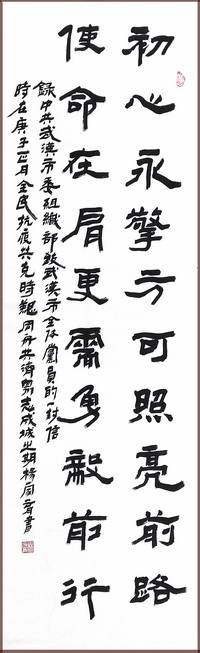 初心永擎方可照亮前路
使命在肩更需勇毅前行
錄中共武漢市委組織部致武漢市全体黨員的一封信
時在庚子正月全民抗疫共克時艱同舟共濟眾志成城之期楊書